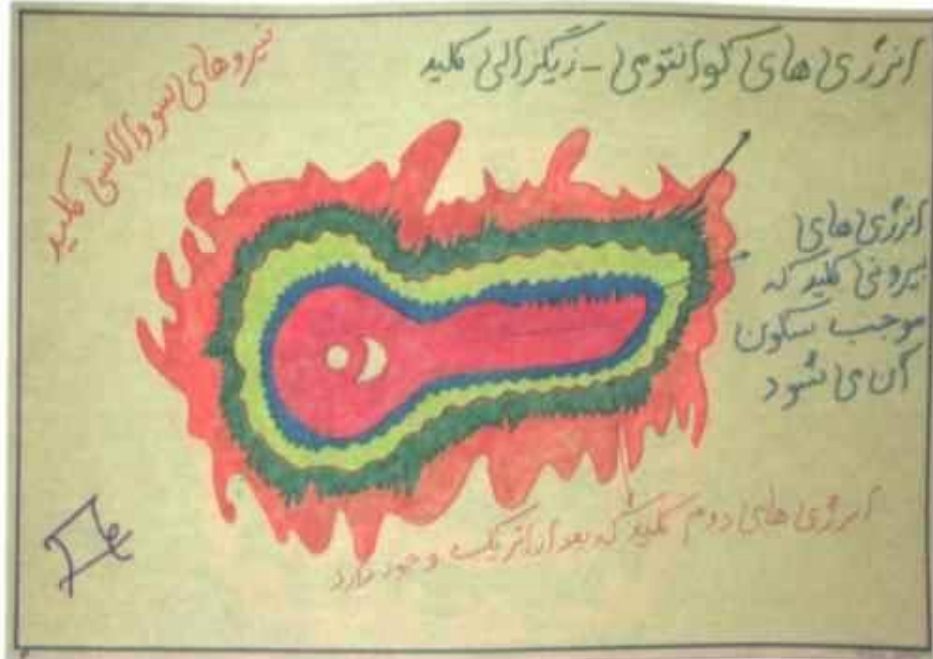 انرژی های کوانتومی - زیگرالی کلید
نیروهای سووالانسی کلید
انرژی های
بیرونی کلید که
موجب سکون
آن می شود
انرژی های دوم کلید که بعد از اتریک وجود دارد